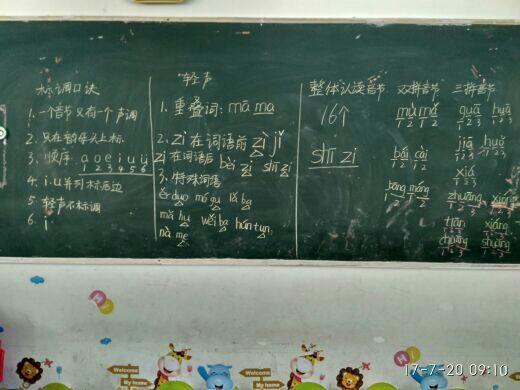 标调口诀
1、一个音节只有一个声调
2、只在韵母头上标
3、顺序: a o e i u ü
1 2 3 4 5 6
4、i.u并列标后边
5 轻声不标调
6、i
轻声
1、重叠词: mā ma
2、zi 在词语前 zì jǐ
zi在词语后 shī zi
3、特殊词语
ěr duo mó gu lǎ ba
mǎ hu wěi ba hún tun
nà me
整体认读音节
16个
shī zi
双拼音节
mù mǎ
1 2 1 2
bái cài
1 2 1 2
bāng máng
1 2 1 2
三拼音节
guā huā
1 2 3 1 2 3
jiā huǒ
1 2 3 1 2 3
xiá
1 2 3
zhuāng xiāng
1 2 3 1 2 3
tiān xiáng
1 2 3 1 2 3
chuāng shuāng
1 2 3 1 2 3
Welcome
Welcome
Hi
Hi
17-7-20 09:10